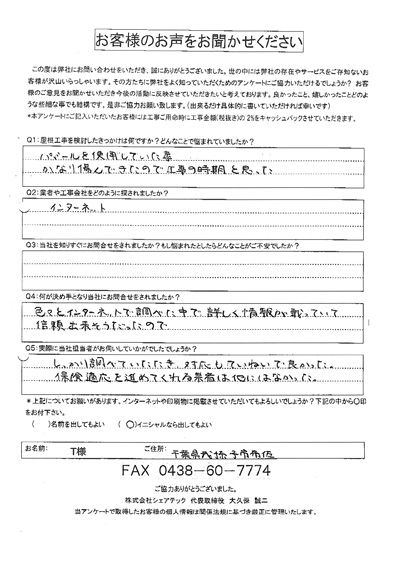 お客様のお声をお聞かせください
この度は弊社にお問い合わせをいただき、誠にありがとうございました。世の中には弊社の存在やサービスをご存知ないお
客様が沢山いらっしゃいます。その方たちに弊社をよく知っていただくためのアンケートにご協力いただけるでしょうか? お客
様のご意見をお聞かせいただき今後の活動に反映させていただきたいと考えております。良かったこと、嬉しかったことどのよ
うな些細な事でも結構です。是非ご協力お願い致します。(出来るだけ具体的に書いていただければ幸いです)
*本アンケートにご記入いただいたお客様には工事ご用命時に工事金額(税抜き)の2%をキャッシュバックさせていただきます。
Q1:屋根工事を検討したきっかけは何ですか?どんなことで悩まれていましたか?
を使用していた
かなり傷んできたので工事の時期と思った
Q2:業者や工事会社をどのように探されましたか?
インターネット
Q3:当社を知りすぐにお問合せをされましたか?もし悩まれたとしたらどんなことがご不安でしたか?
Q4:何が決め手となり当社にお問合せをされましたか?
色々とインターネットで調べた中で詳しく情報が載っていて
信頼出来そうだったので
Q5:実際に当社担当者がお伺いしていかがでしたでしょうか?
しっかり調べていただき、対応もていねいで良かった。
保険適応を進めてくれる業者は他にはなかった。
*上記についてお願いがあります。インターネットや印刷物に掲載させていただいてもよろしいでしょうか?下記の中から〇印
をお付下さい。
( )名前を出してもよい ( 〇 )イニシャルなら出してもよい
お名前: T様 ご住所: 千葉県我孫子市布佐
FAX 0438-60-7774
ご協力ありがとうございました。
株式会社シェアテック 代表取締役 大久保 誠二
当アンケートで取得したお客様の個人情報は関係法規に基づき厳正に管理いたします。